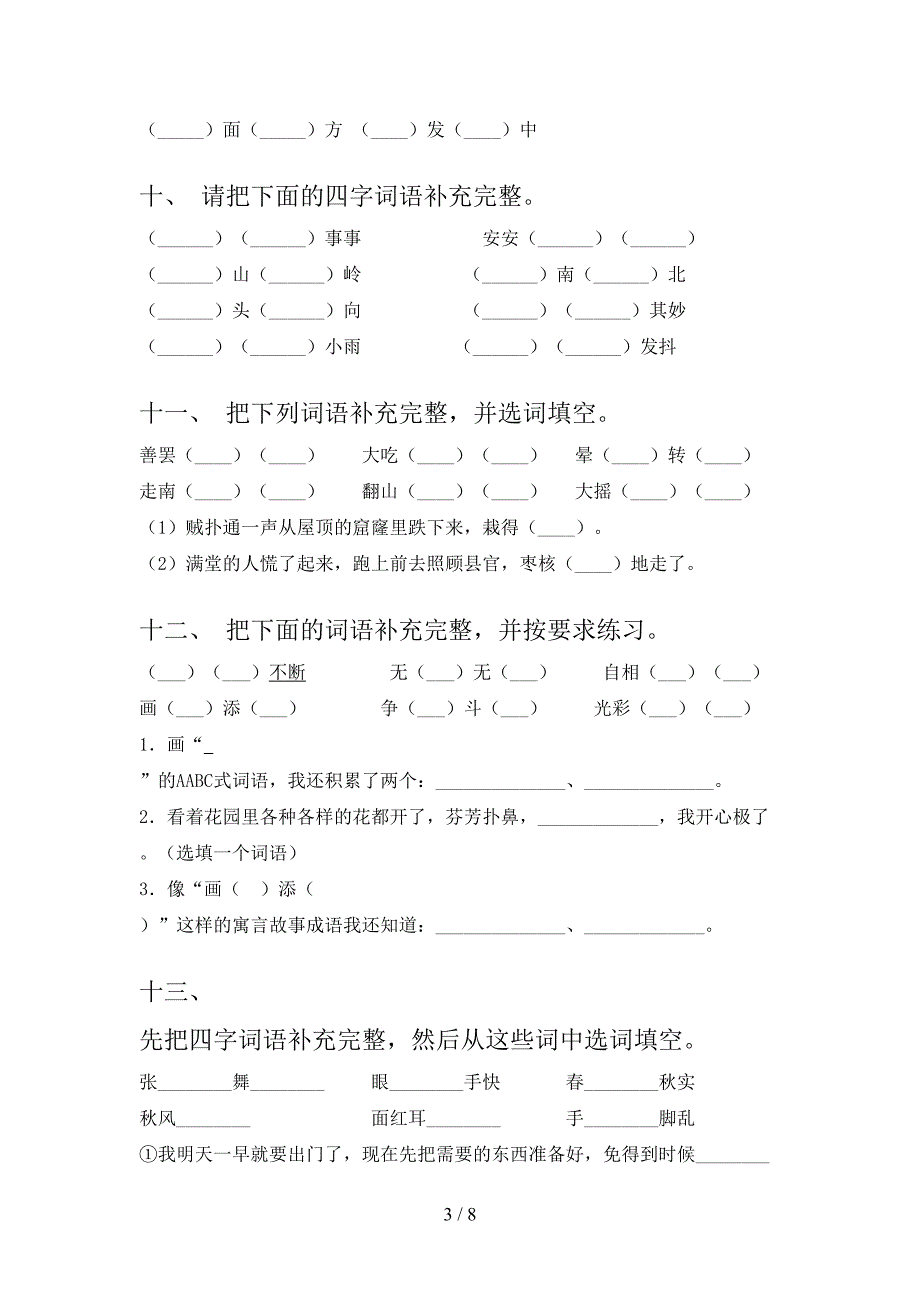 （_____）面（_____）方 （____）发（____）中
十、 请把下面的四字词语补充完整。
（______）（______）事事 安安（______）（______）
（______）山（______）岭 （______）南（______）北
（______）头（______）向 （______）（______）其妙
（______）（______）小雨 （______）（______）发抖
十一、 把下列词语补充完整，并选词填空。
善罢（____）（____） 大吃（____）（____） 晕（____）转（____）
走南（____）（____） 翻山（____）（____） 大摇（____）（____）
（1）贼扑通一声从屋顶的窟窿里跌下来，栽得（____）。
（2）满堂的人慌了起来，跑上前去照顾县官，枣核（____）地走了。
十二、 把下面的词语补充完整，并按要求练习。
（___）（___）不断 无（___）无（___） 自相（___）（___）
画（___）添（___） 争（___）斗（___） 光彩（___）（___）
1．画“_
”的AABC式词语，我还积累了两个：______________、______________。
2．看着花园里各种各样的花都开了，芬芳扑鼻，_____________，我开心极了
。（选填一个词语）
3．像“画（ ）添（
）”这样的寓言故事成语我还知道：______________、_____________。
十三、
先把四字词语补充完整，然后从这些词中选词填空。
张________舞________ 眼________手快 春________秋实
秋风________ 面红耳________ 手________脚乱
①我明天一早就要出门了，现在先把需要的东西准备好，免得到时候________
3 / 8